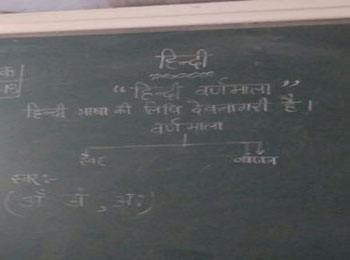 हिन्दी
“हिन्दी वर्णमाला”
हिन्दी भाषा की लिपि देवनागरी है।
वर्णमाला
स्वर व्यंजन
स्वर:-
(अँ अं, अः)